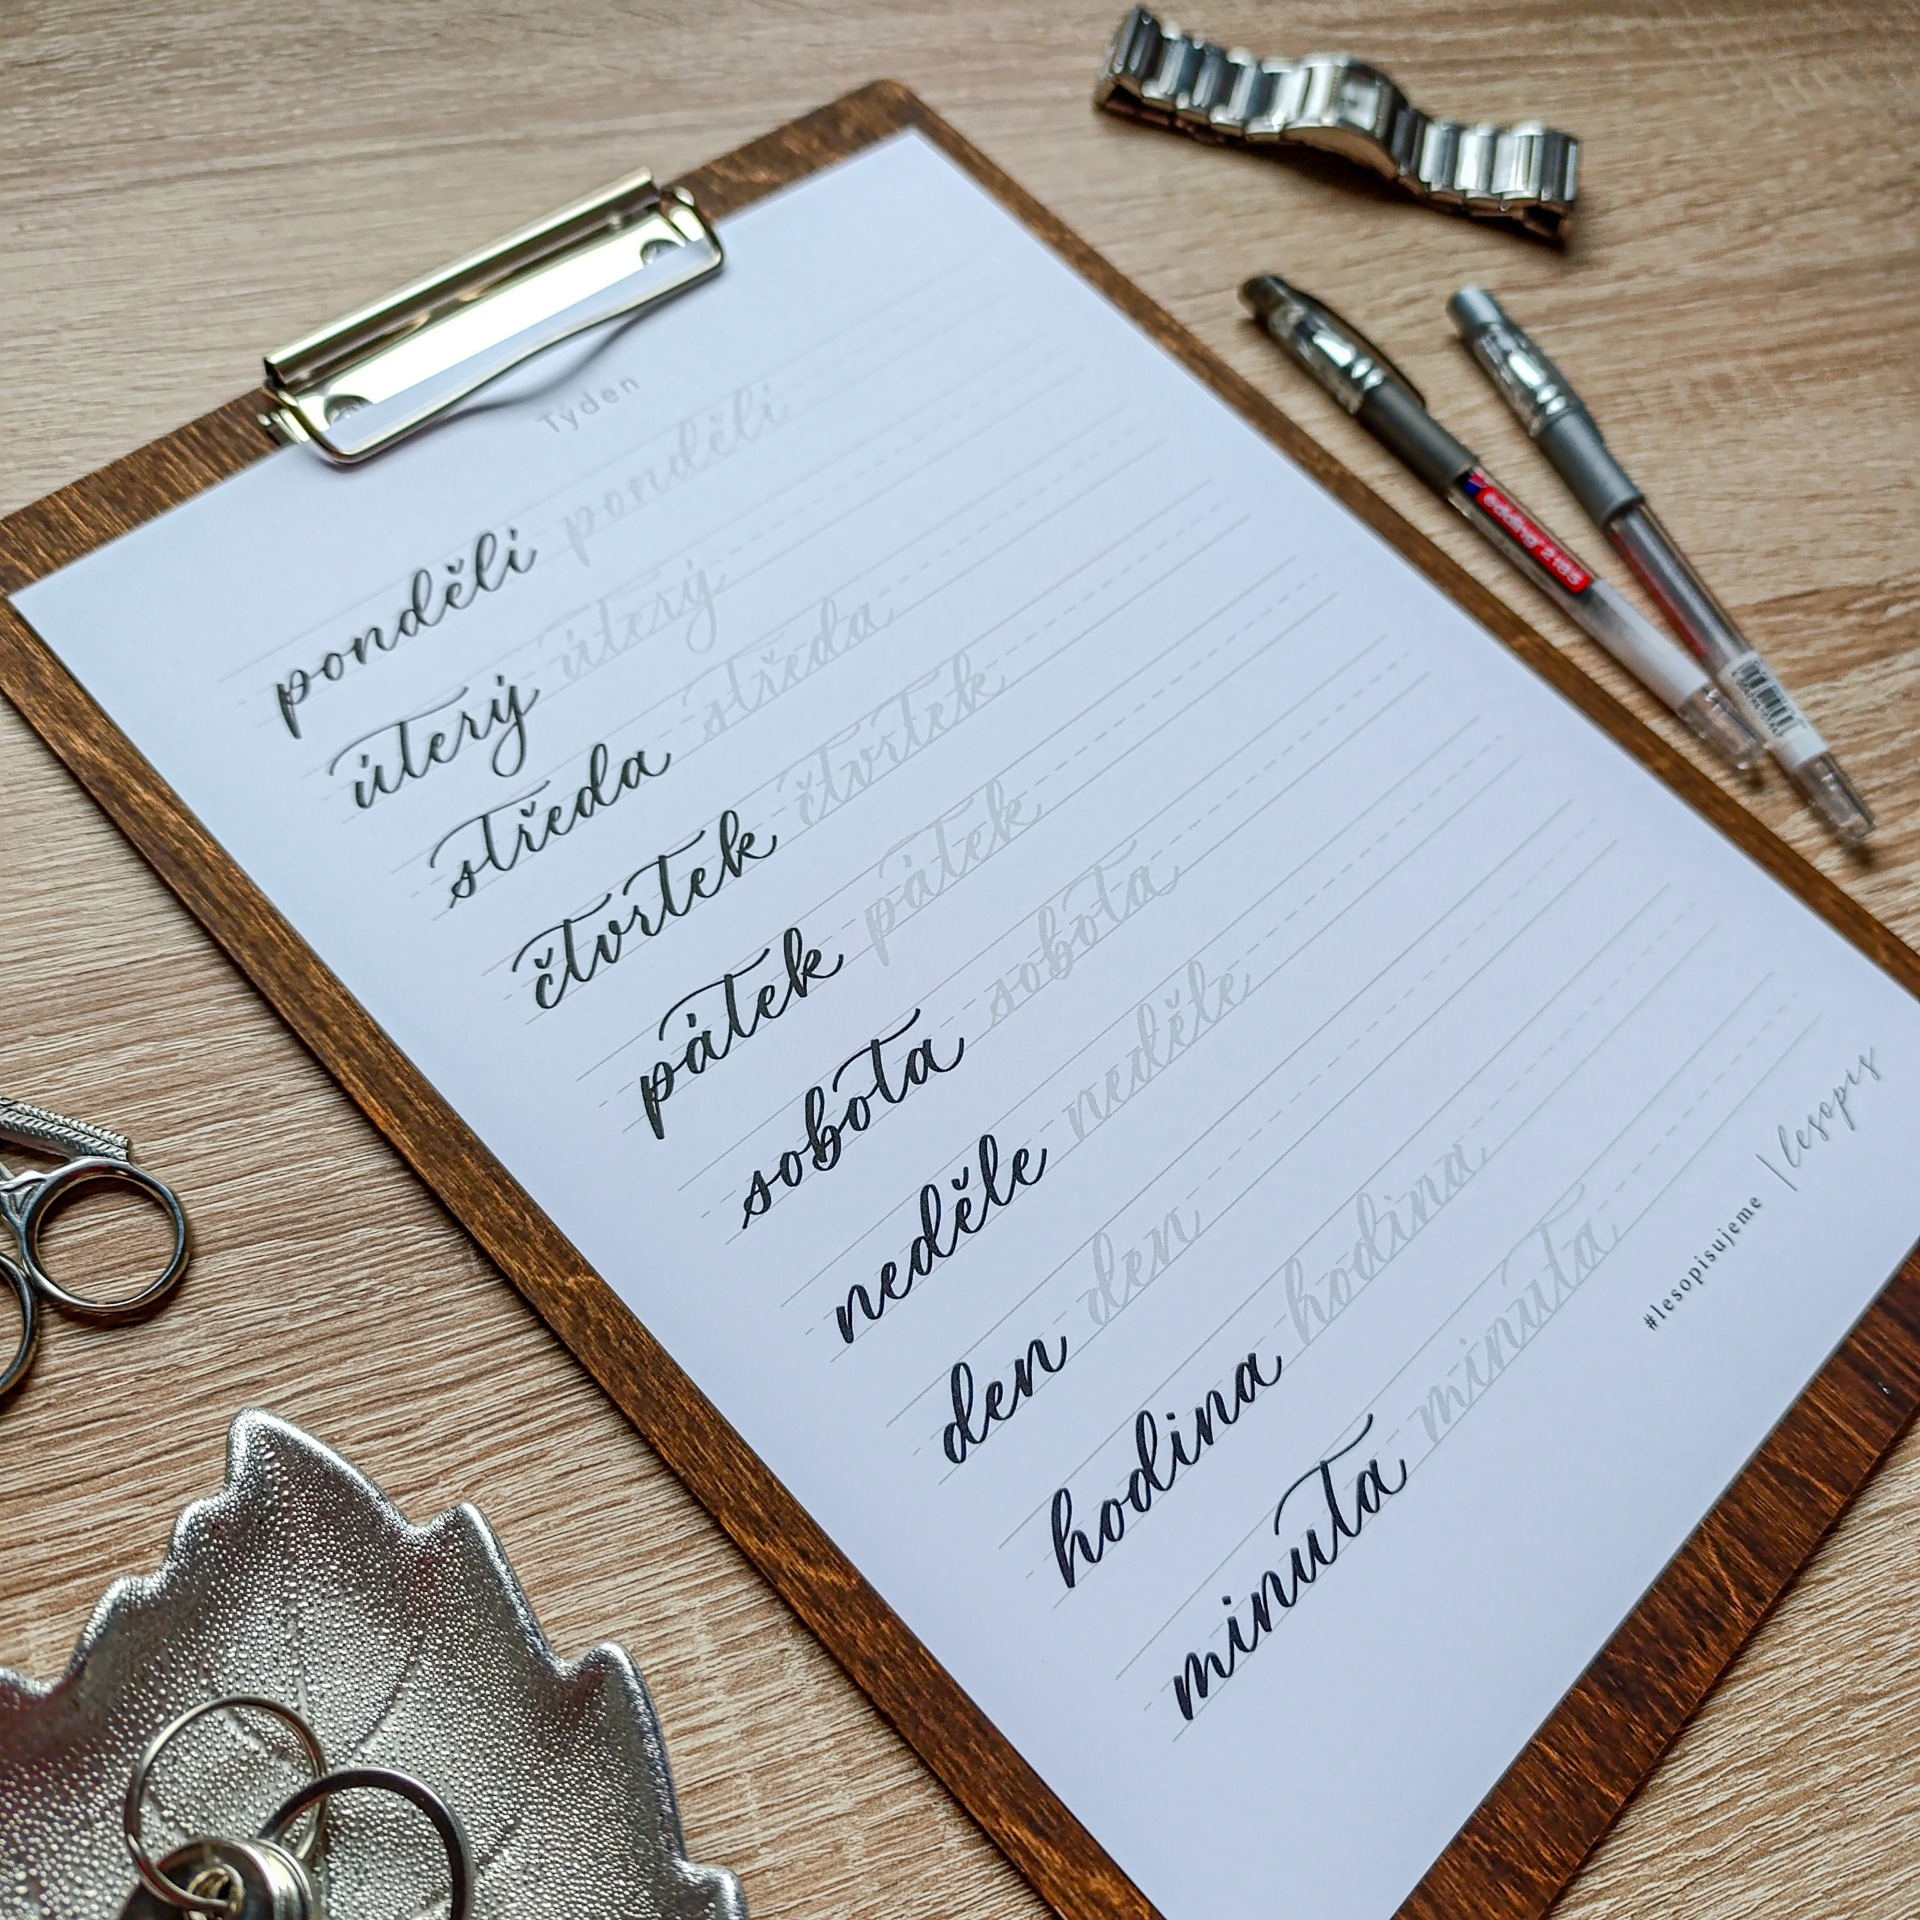 Týden
pondělí pondělí
úterý úterý
středa středa
čtvrtek čtvrtek
pátek pátek
sobota sobota
neděle neděle
den den
hodina hodina
minuta minuta
#lesopisujeme | lesopis
edding 2185